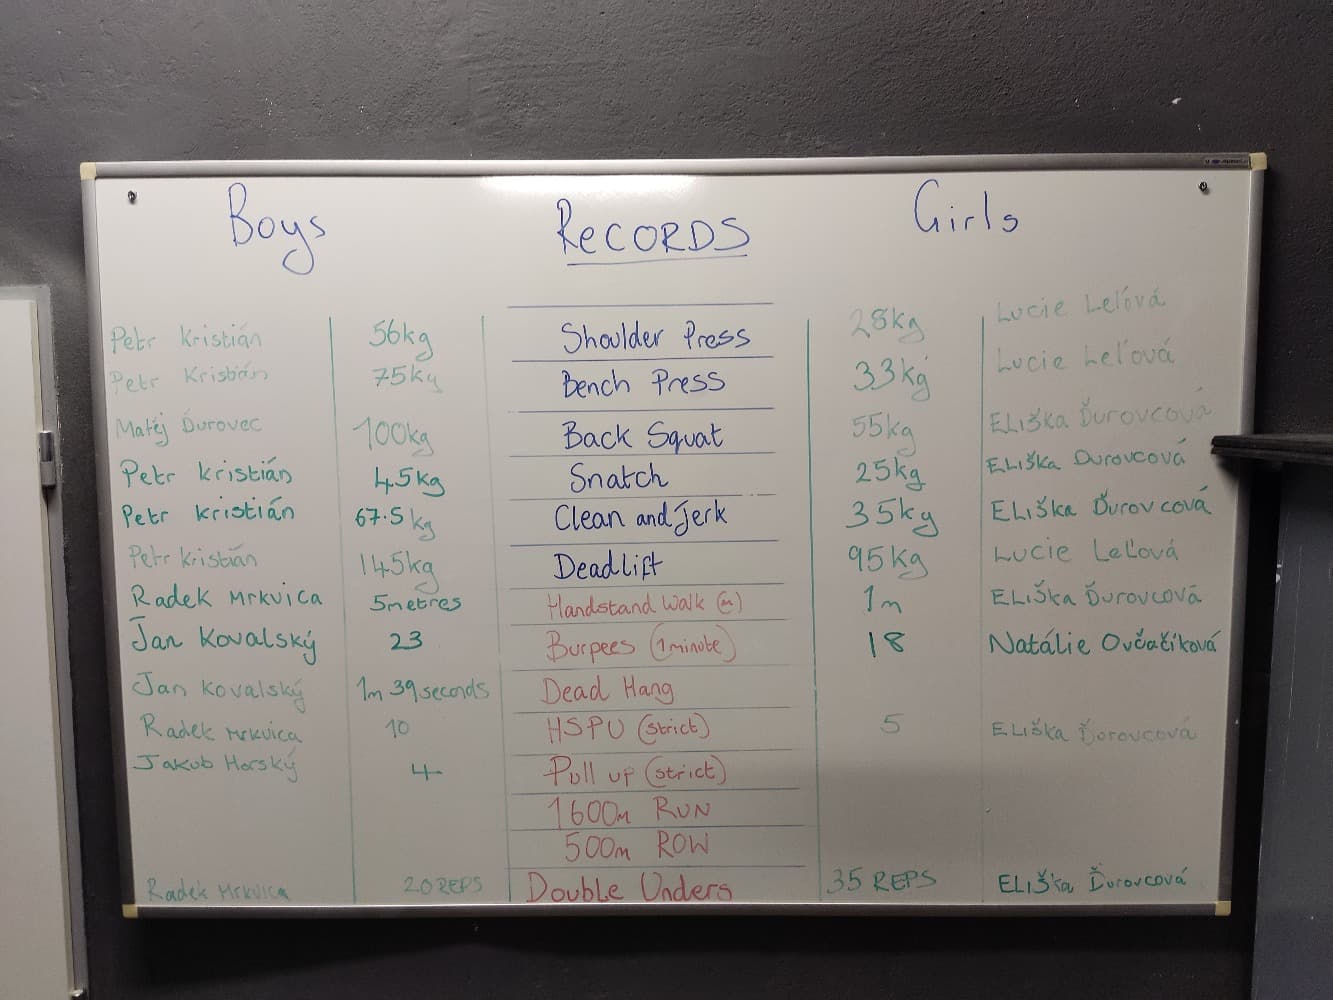 Boys RECORDS Girls
Petr Kristián 56kg Shoulder Press 28kg Lucie Leľová
Petr Kristián 75kg Bench Press 33kg Lucie Leľová
Matěj Ďurovec 100kg Back Squat 55kg ELIŠKA ĎUROVCOVÁ
Petr Kristián 45kg Snatch 25kg ELIŠKA DUROVCOVÁ
Petr Kristián 67.5kg Clean and Jerk 35kg ELIŠKA ĎUROVCOVÁ
Petr Kristián 145kg Deadlift 95kg Lucie Leľová
Radek Mrkvica 5metres Handstand Walk (m) 1m ELIŠKA ĎUROVCOVÁ
Jan Kovalský 23 Burpees (1minute) 18 Natálie Ovčačíková
Jan Kovalský 1m 39seconds Dead Hang
Radek Mrkvica 10 HSPU (strict) 5 ELIŠKA ĎUROVCOVÁ
Jakub Horský 4 Pull up (strict)
1600m RUN
500m ROW
Radek Mrkvica 20 REPS Double Unders 35 REPS ELIŠKA ĎUROVCOVÁ